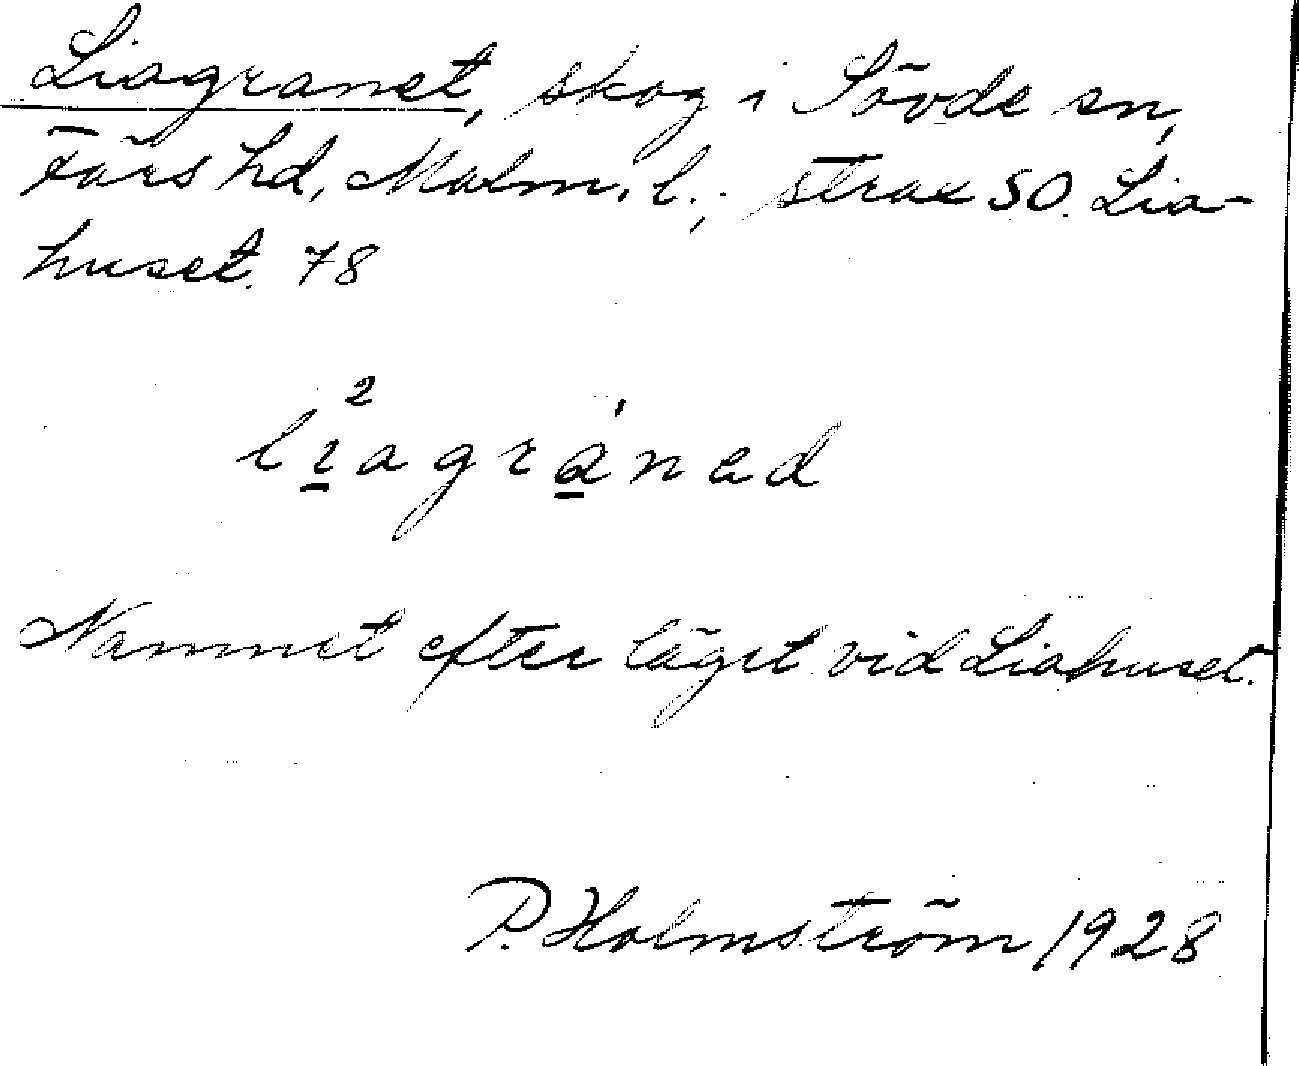 Liagranet, skog i Sövde sn,
Färs hd, Malm. l.; strax SO. Lia-
huset. 78
2
liagránad
Namnet efter läget vid Liahuset.
P. Holmström 1928